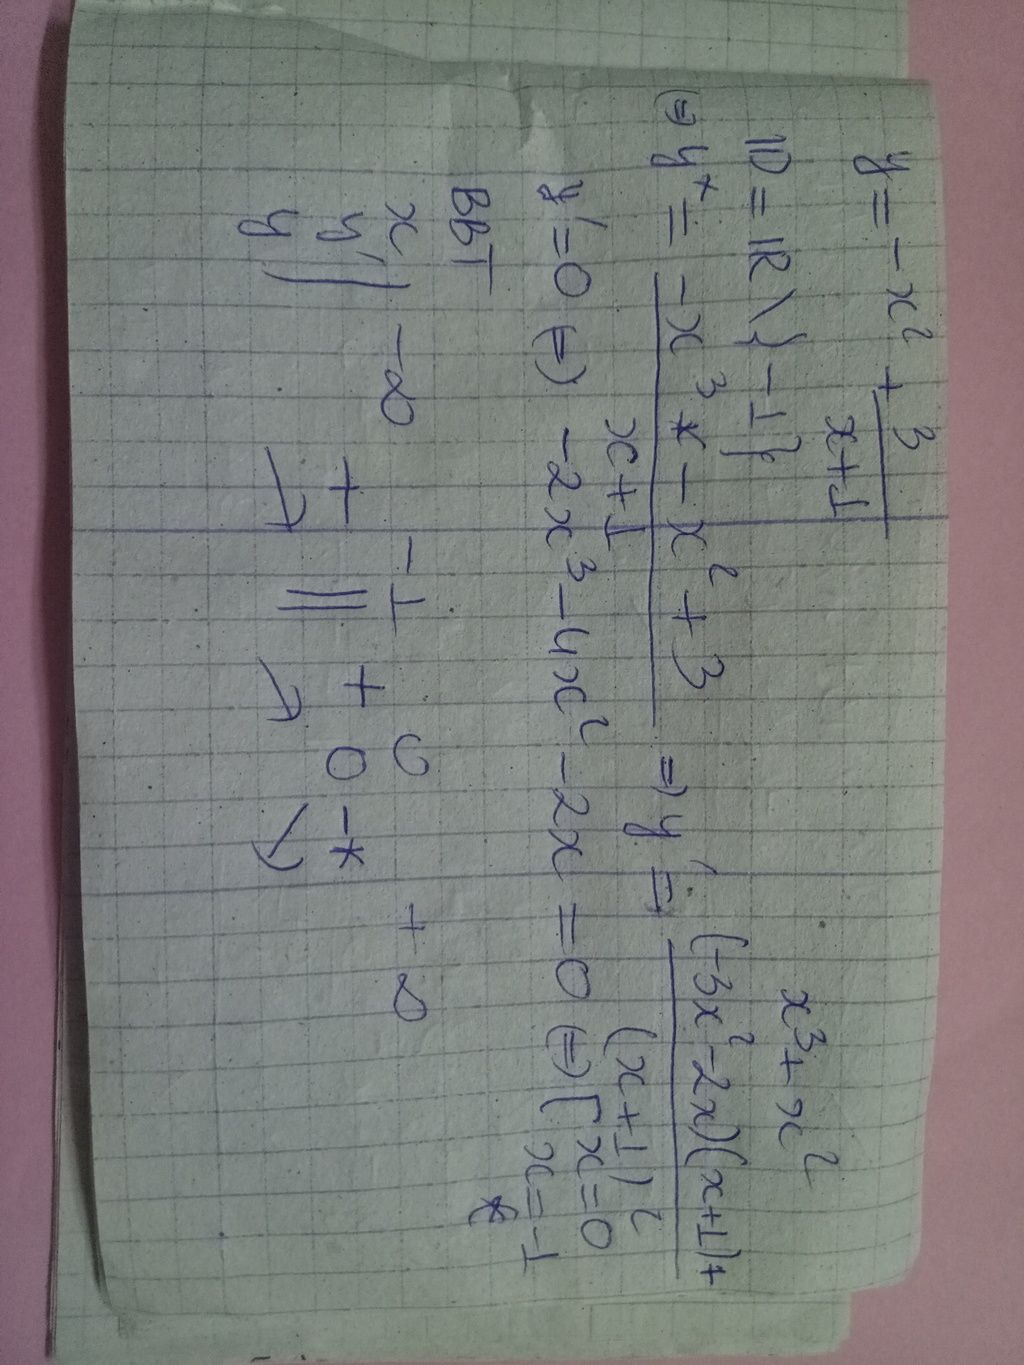 y = -x² + 3/(x+1)
D = R \ {-1}
(=) y = (-x³ - x² + 3)/(x+1) => y' = ((-3x² - 2x)(x+1) + x³ + x²)/(x+1)²
y' = 0 (=) -2x³ - 4x² - 2x = 0 (=) [ x = 0
x = -1
BBT
x | -∞ -1 0 +∞
y' | + || + 0 -
y | ↗ || ↗ ↘